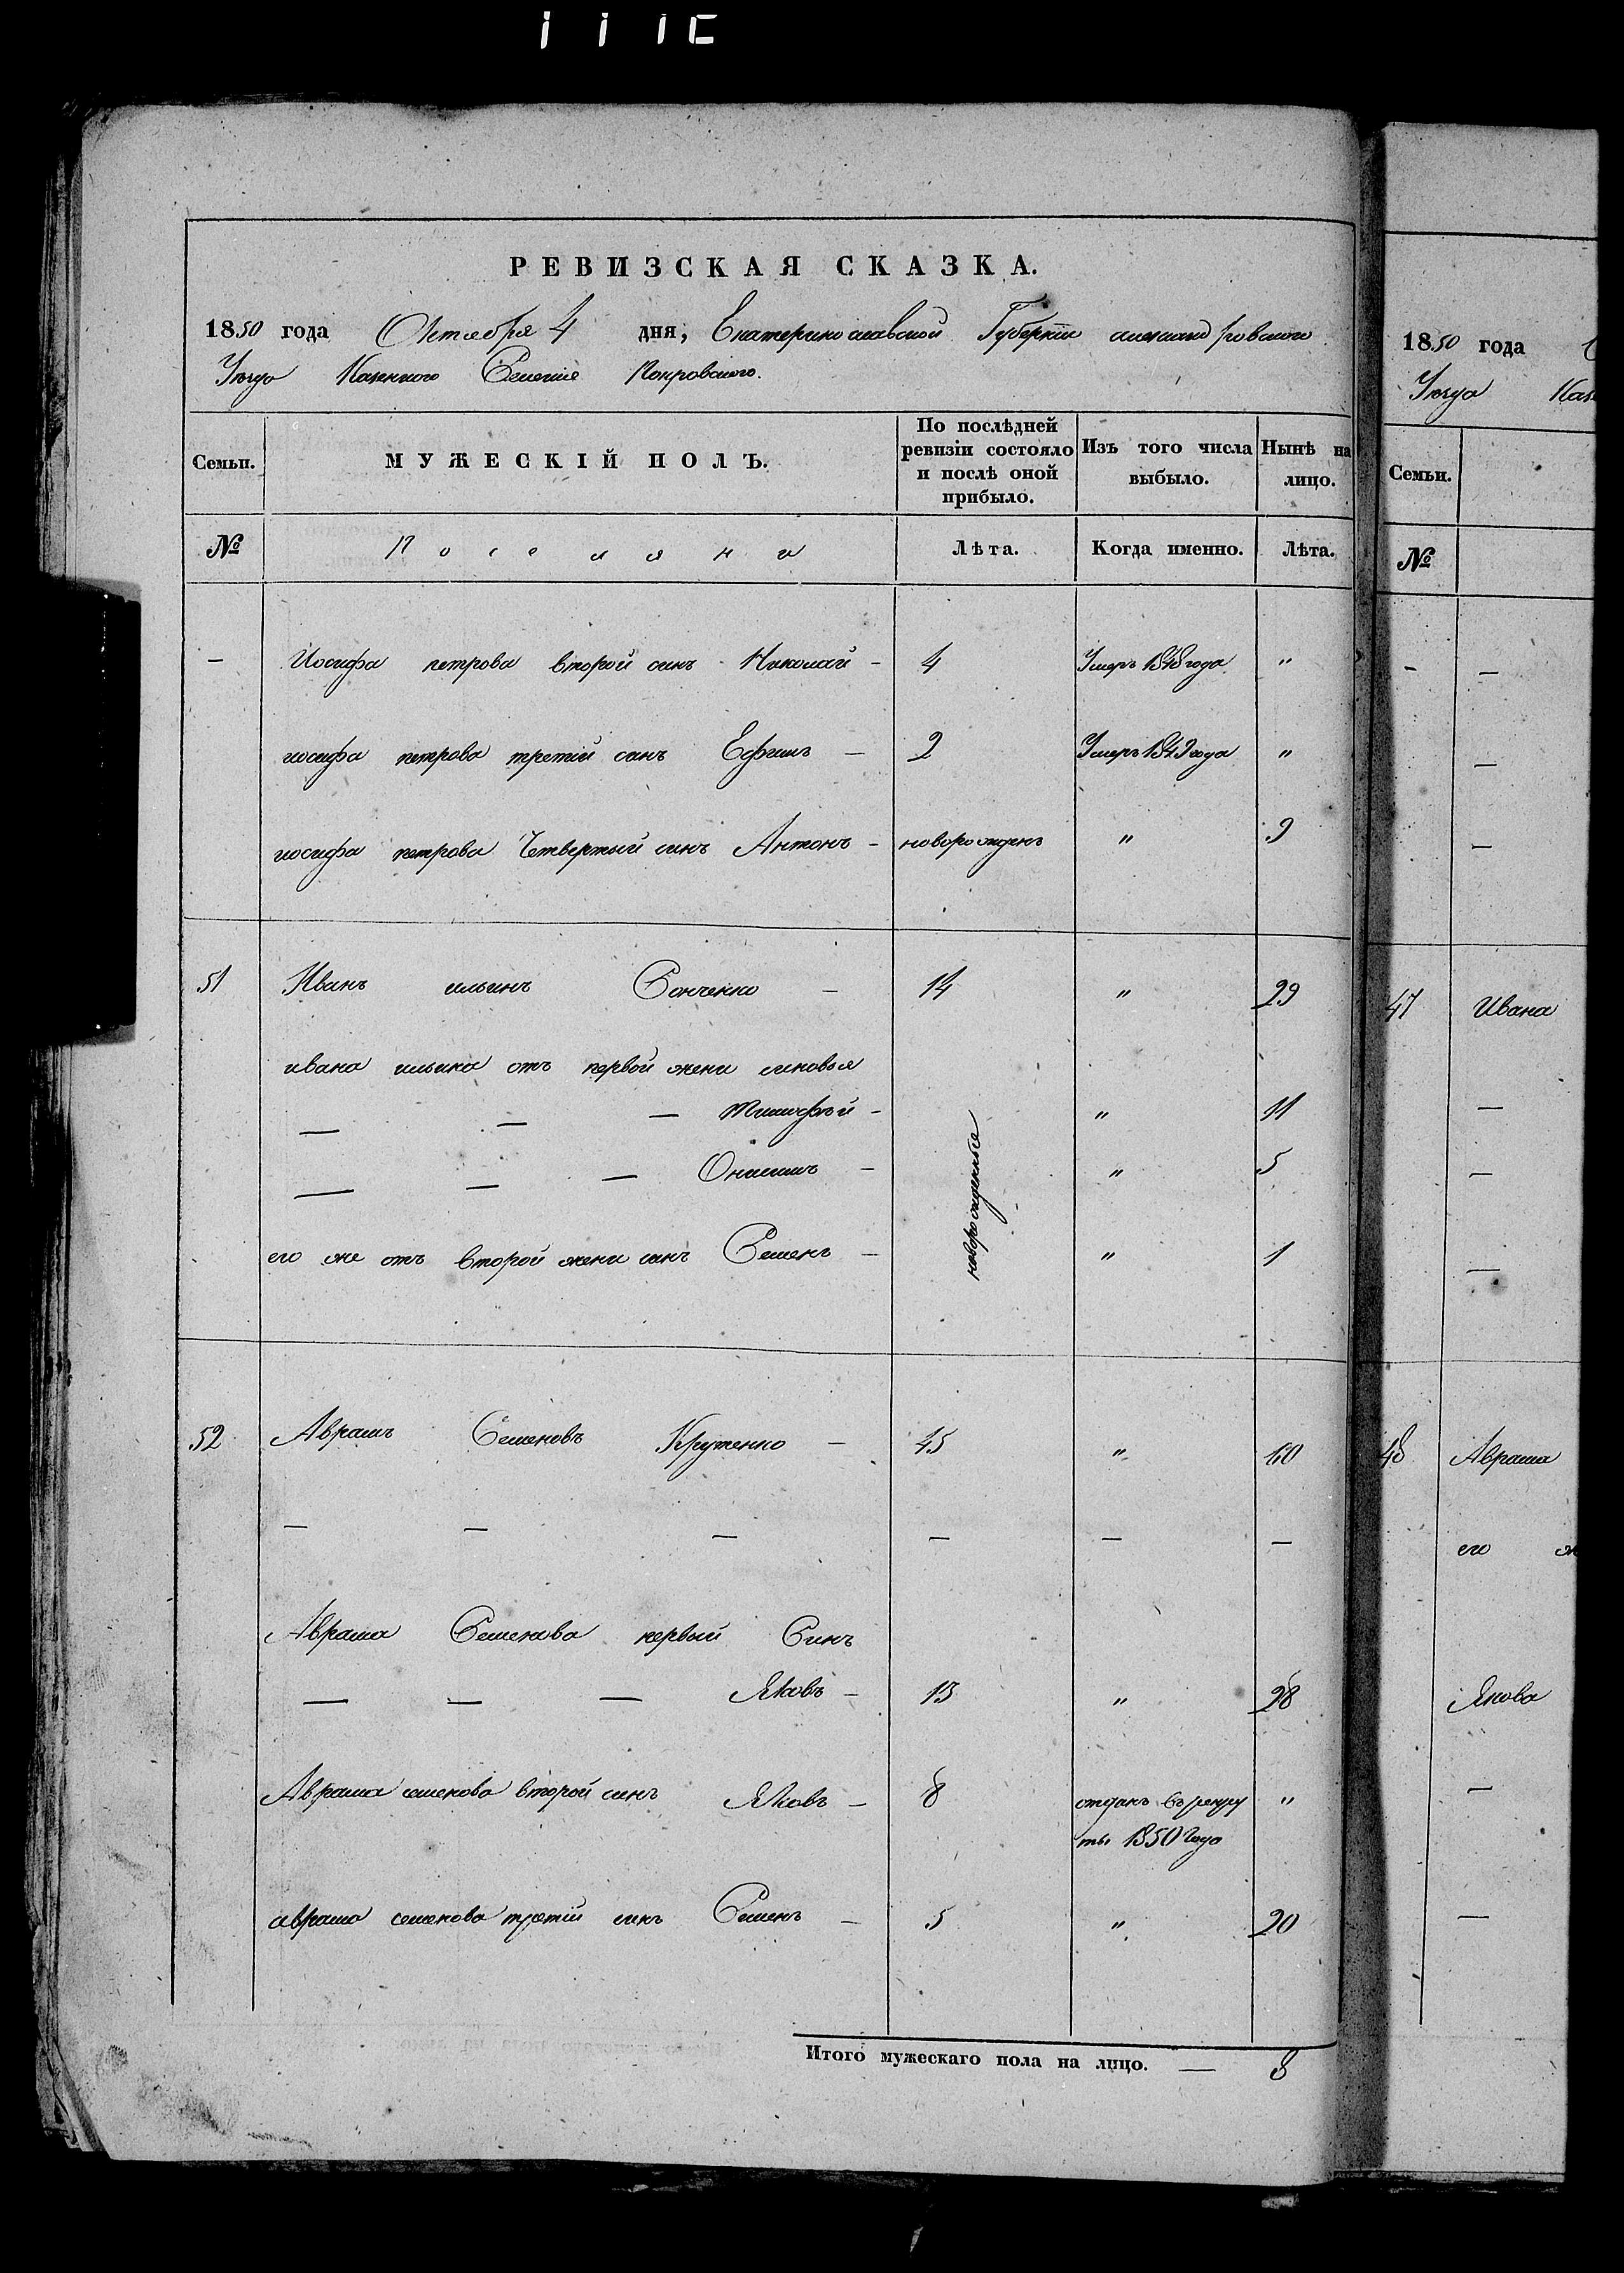 РЕВИЗСКАЯ СКАЗКА.
1850 года Октября 4 дня, Екатеринославской Губернии александровского
Уезда Казенного Селения Покровского.
Семьи. МУЖЕСКІЙ ПОЛЪ. По послѣдней ревизіи состояло и послѣ оной прибыло. Изъ того числа выбыло. Нынѣ на лицо.
№ Поселяни Лѣта. Когда именно. Лѣта.
— Иосифа петрова второй синъ Николай — 4 Умеръ 1848 года "
иосифа петрова третий синъ Ефимъ — 2 Умеръ 1849 года "
иосифа петрова Четвертый синъ Антонъ — новорожденъ " 9
51 Иванъ ильинъ Сонченко — 14 " 29
ивана ильина отъ первой жени синовья
— — — Тимофѣй — " 11
— — — Онисимъ — " 5
новорожденные
его же отъ второй жени синъ Семенъ — " 1
52 Аврамъ Семеновъ Крутенко — 45 " 60
— — — — — —
Аврама Семенова первый Синъ
— — — Яковъ — 13 " 28
Аврама семенова второй синъ Яковъ — 8 отданъ въ рекру "
ты 1850 Года
аврама семенова третій синъ Семенъ — 5 " 20
Итого мужескаго пола на лицо. — 8
1850 года
Уезда
Семьи.
№
47 Ивана
48 Аврама
его
Якова